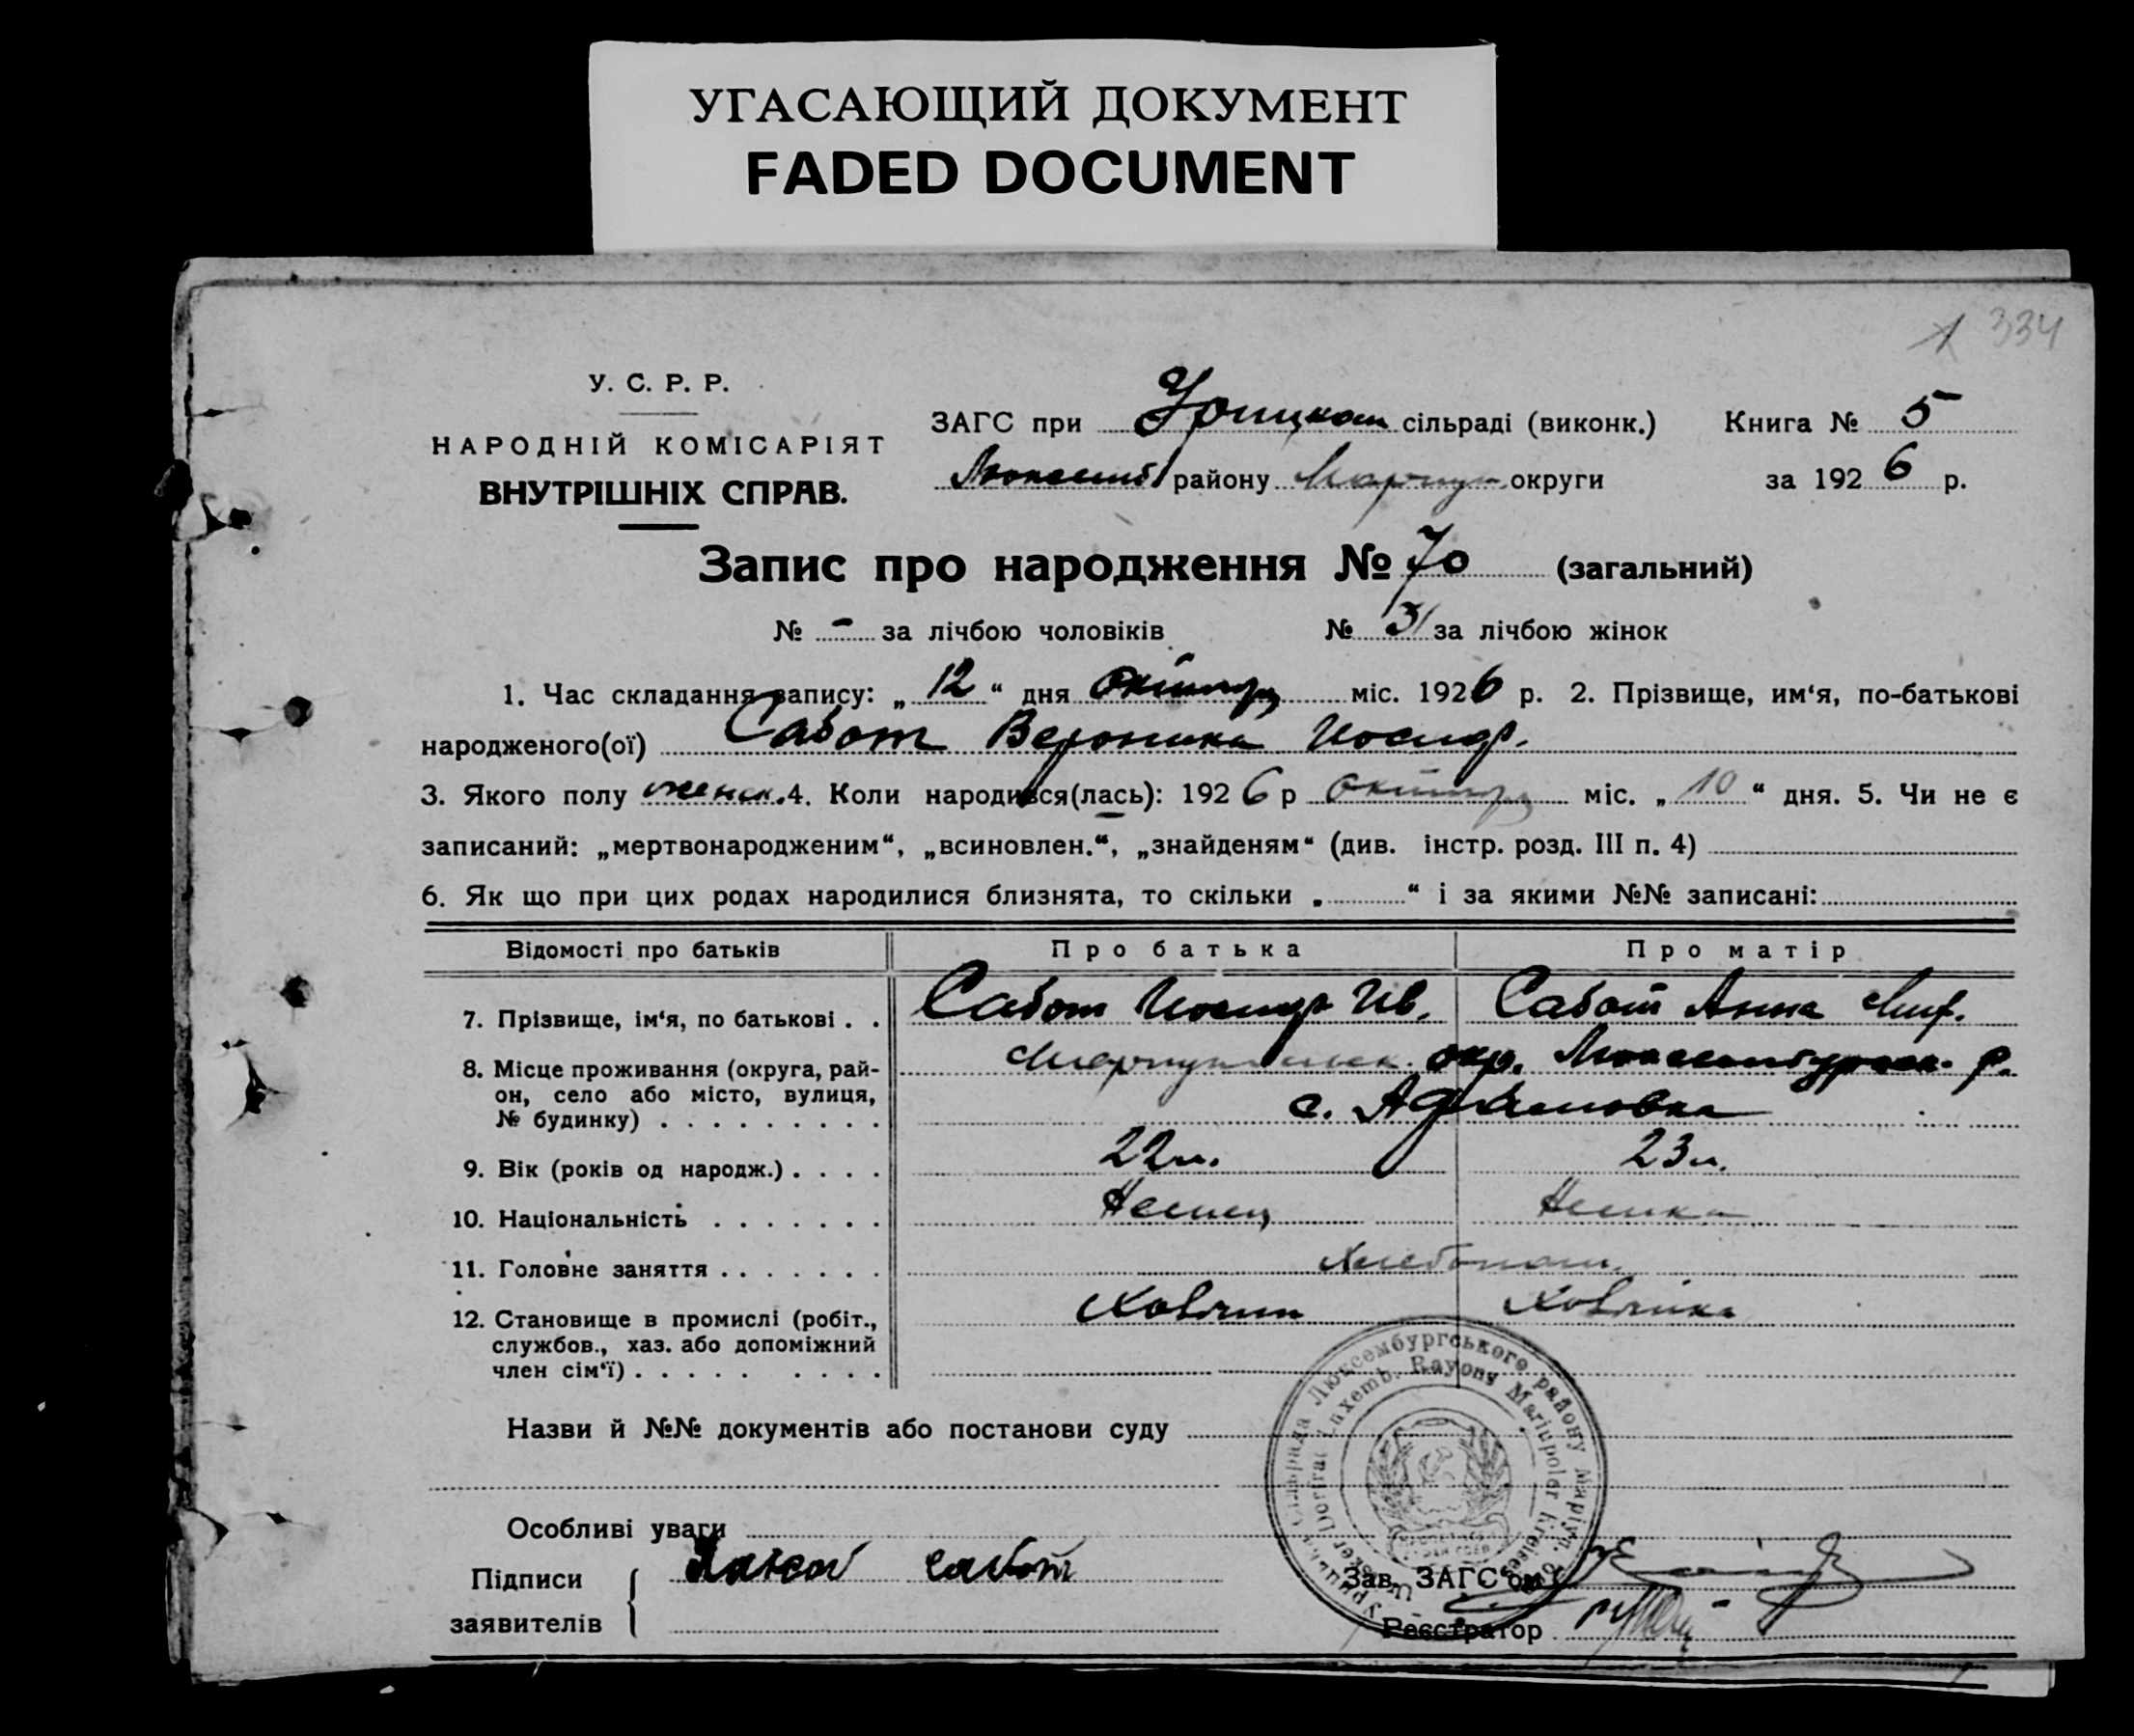 УГАСАЮЩИЙ ДОКУМЕНТ
FADED DOCUMENT
334
У. С. Р. Р.
НАРОДНІЙ КОМІСАРІЯТ
ВНУТРІШНІХ СПРАВ.
ЗАГС при Урицком сільраді (виконк.) Книга № 5
району Мариуп. округи за 1926 р.
Запис про народження № 70 (загальний)
№ - за лічбою чоловіків № 31 за лічбою жінок
1. Час складання запису: „12“ дня октября міс. 1926 р. 2. Прізвище, им‘я, по-батькові
народженого(ої) Сабот Вероника Иосиф.
3. Якого полу женск. 4. Коли народився(лась): 1926 р октября міс. „10“ дня. 5. Чи не є
записаний: „мертвонародженим“, „всиновлен.“, „знайденям“ (див. інстр. розд. III п. 4)
6. Як що при цих родах народилися близнята, то скільки „ “ і за якими №№ записані:
Відомості про батьків Про батька Про матір
7. Прізвище, ім‘я, по батькові . . Сабот Иосиф Ив. Сабот Анна
8. Місце проживання (округа, рай-
он, село або місто, вулиця,
№ будинку) . . . . . . . . .
Мариупольск. окр. Люксембургск. р.
с.
9. Вік (років од народж.) . . . . 22 л. 23 л.
10. Національність . . . . . . . Немец Немка
11. Головне заняття . . . . . . . Хлебопаш.
12. Становище в промислі (робіт.,
службов., хаз. або допоміжний
член сім‘ї) . . . . . . . . .
Хозяин Хозяйка
Назви й №№ документів або постанови суду
Особливі уваги
Підписи
заявителів
Сабот
Урицька Сільрада Люксембургського району Маріуп. окр.
Dorfrat Luxemb. Rayons Mariupoler Kreises
Зав. ЗАГС‘ом
Реєстратор